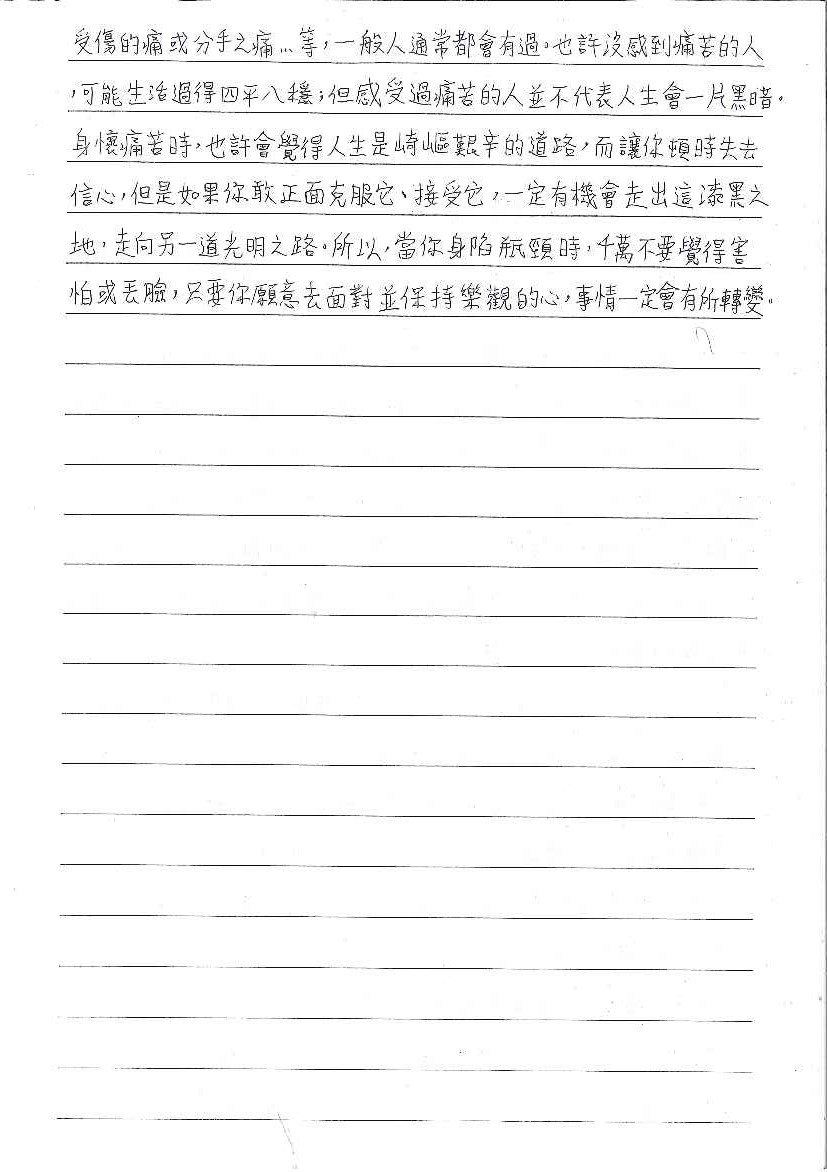 受傷的痛或分手之痛…等，一般人通常都會有過。也許沒感到痛苦的人
，可能生活過得四平八穩；但感受過痛苦的人並不代表人生會一片黑暗。
身懷痛苦時，也許會覺得人生是崎嶇艱辛的道路，而讓你頓時失去
信心，但是如果你敢正面克服它、接受它，一定有機會走出這漆黑之
地，走向另一道光明之路。所以，當你身陷瓶頸時，千萬不要覺得害
怕或丟臉，只要你願意去面對並保持樂觀的心，事情一定會有所轉變。